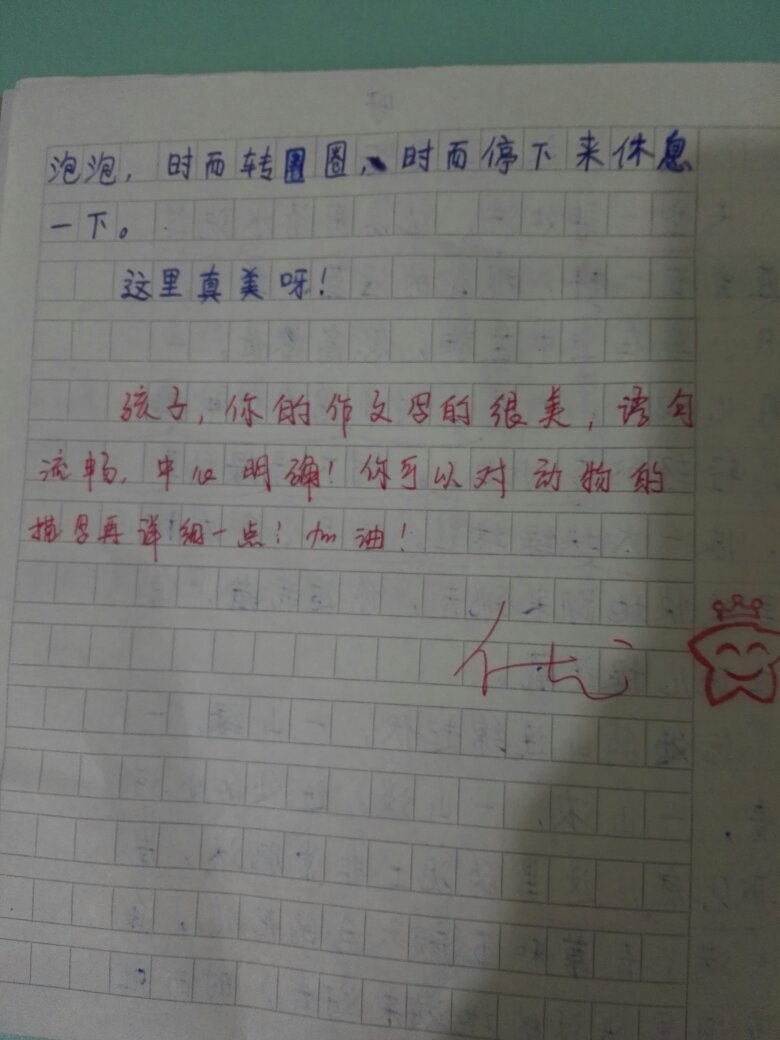 泡泡，时而转圈圈，时而停下来休息
一下。
这里真美呀！
孩子，你的作文写的很美，语句
流畅，中心明确！你可以对动物的
描写再详细一点！加油！